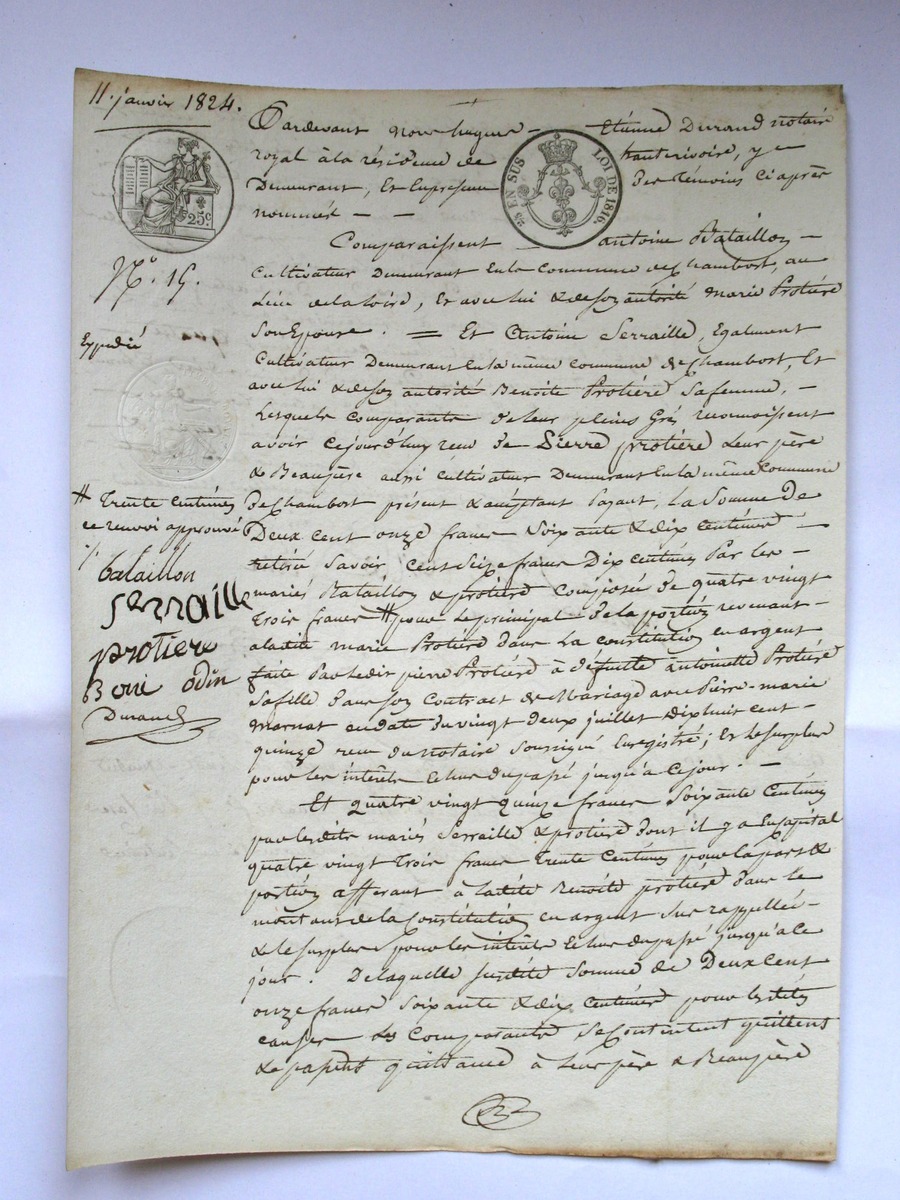 11. janvier 1824.
Pardevant Nous hugue - Etienne Durand notaire
royal à la résidence de hauterivoire, y
Demeurant, Et En présence Des Témoins Ci après
nommés - -
25c.
25 EN SUS LOI DE 1816.
N.o 15.
Expedié
Comparaissent antoine Bataillon
Cultivateur Demeurant En la Commune de Chambost, au
Lieu de la Loire, Et avec lui & de son autorité marie Protière
Son Epouse. = Et antoine Serraille, Egalement
Cultivateur Demeurant En la même Commune de Chambost, Et
avec lui & de son autorité Benoite Protière Sa femme, -
Lesquels Comparants de leur pleins Gré reconnoissent
avoir Cejourd'huy reçu de Pierre protière Leur père
& Beaupère aussi Cultivateur Demeurant En la même Commune
de Chambost présent & acceptant Payant, La Somme De
Deux Cent onze francs Soixante & dix Centimes -
Savoir Cent Seize francs Dix Centimes Par les -
mariés Bataillon & protière Composée de quatre vingt
Trois francs # pour Le principal de la portion revenant -
a la dite marie Protière dans La Constitution en argent
faite Par Ledit pierre Protière à défunte antoinette Protière
Sa fille dans son Contract de Mariage avec Pierre-marie
marnat en date du vingt deux juillet dix huit cent -
quinze reçu du notaire Soussigné Enregistré; Et le Surplus
pour les intérêts Echus du passé jusqu'a Ce jour. -
Et quatre vingt quinze francs Soixante Centimes
par lesdits mariés Serraille & protière dont il y a En Capital
quatre vingt Trois francs Trente Centimes pour la part &
portion afferant à ladite Benoite protière dans le
montant de la Constitution en argent Sus rappellée -
& le Surplus pour les intérêts Echus du passé jusqu'a Ce
jour. De laquelle Susdite Somme de Deux Cent
onze francs Soixante & dix Centimes pour lesdites
Causes Les Comparants Se Contentent quittent
& en passent quittance à Leur père & Beaupère
# Trente Centimes
ce renvoi approuvé
bataillon
serraille
protiere
odin
Durand